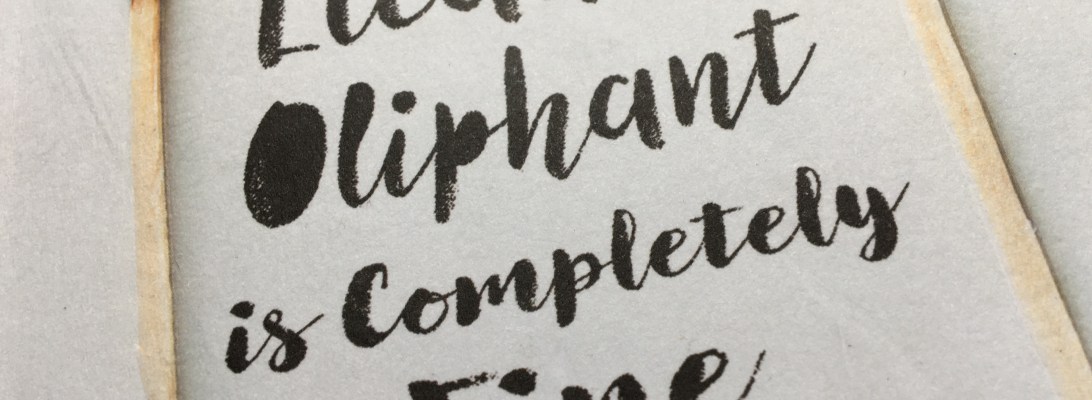 Oliphant
is Completely
Fine